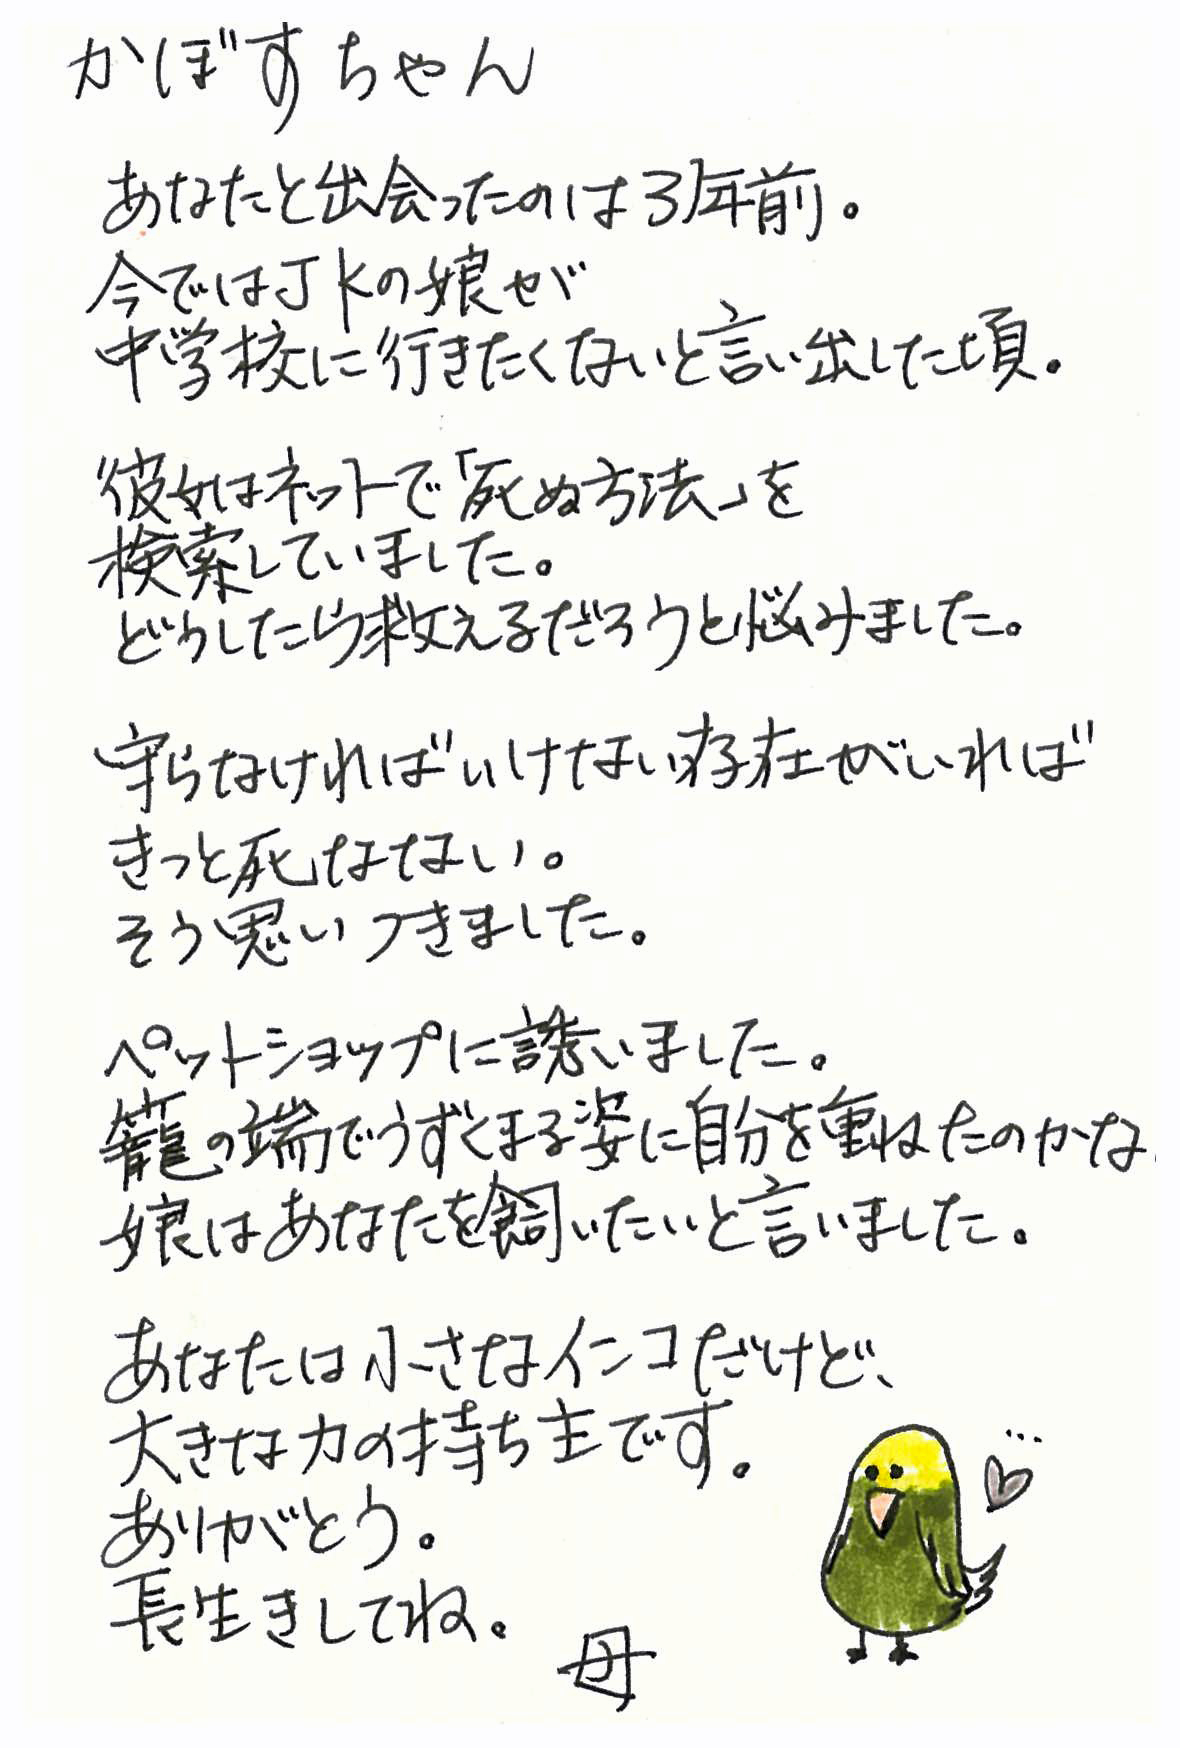 かぼすちゃん
あなたと出会ったのは3年前。
今ではJKの娘が
中学校に行きたくないと言い出した頃。
彼女はネットで「死ぬ方法」を
検索していました。
どうしたら救えるだろうと悩みました。
守らなければいけない存在がいれば
きっと死なない。
そう思いつきました。
ペットショップに誘いました。
籠の端でうずくまる姿に自分を重ねたのかな
娘はあなたを飼いたいと言いました。
あなたは小さなインコだけど、
大きな力の持ち主です。
ありがとう。
長生きしてね。
母